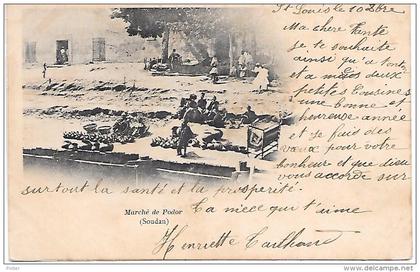 St Louis le 10 Dbre
Ma chère Tante
Je te souhaite
ainsi qu'à ton
et à mes deux
petites Cousines
une bonne et
heureuse année
et je fais des
vœux pour votre
bonheur et que dieu
vous accorde sur
surtout la santé et la prospérité.
Ta nièce qui t'aime
Henriette
Marché de Podor
(Soudan)
delcampe.net